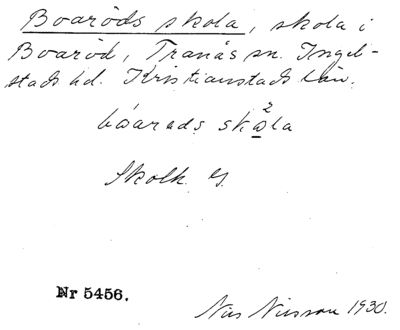 Boaröds skola, skola i
Boaröd, Tranås sn. Ingel-
stads hd. Kristianstads län.
bóarads skωla
2
Skolk. G.
Nr 5456.
Nils Nilsson 1930.